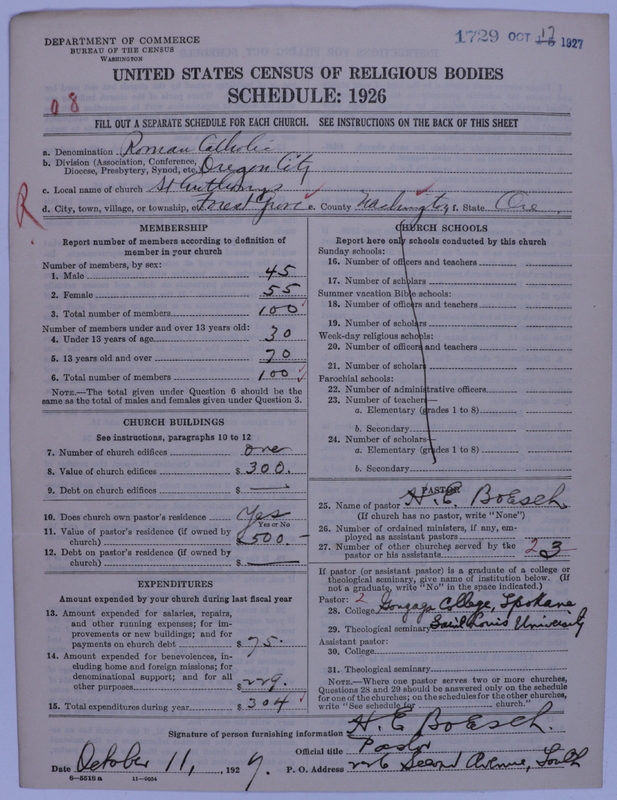 DEPARTMENT OF COMMERCE
BUREAU OF THE CENSUS
WASHINGTON
1729 OCT 17 1927
UNITED STATES CENSUS OF RELIGIOUS BODIES
SCHEDULE: 1926
08
FILL OUT A SEPARATE SCHEDULE FOR EACH CHURCH. SEE INSTRUCTIONS ON THE BACK OF THIS SHEET
a. Denomination Roman Catholic
b. Division (Association, Conference, Diocese, Presbytery, Synod, etc.) Oregon City
c. Local name of church St Anthonys
d. City, town, village, or township, etc. Forest Grove e. County Washington f. State Ore
R.
MEMBERSHIP
Report number of members according to definition of
member in your church
Number of members, by sex:
1. Male 45
2. Female 55
3. Total number of members 100
Number of members under and over 13 years old:
4. Under 13 years of age 30
5. 13 years old and over 70
6. Total number of members 100
NOTE.—The total given under Question 6 should be
same as the total of males and females given under Question 3.
CHURCH BUILDINGS
See instructions, paragraphs 10 to 12
7. Number of church edifices One
8. Value of church edifices $ 300.
9. Debt on church edifices $
10. Does church own pastor's residence Yes
Yes or No
11. Value of pastor's residence (if owned by
church) $ 500
12. Debt on pastor's residence (if owned by
church) $
EXPENDITURES
Amount expended by your church during last fiscal year
13. Amount expended for salaries, repairs,
and other running expenses; for im-
provements or new buildings; and for
payments on church debt $ 75.
14. Amount expended for benevolences, in-
cluding home and foreign missions; for
denominational support; and for all
other purposes $ 229.
15. Total expenditures during year $ 304
CHURCH SCHOOLS
Report here only schools conducted by this church
Sunday schools:
16. Number of officers and teachers
17. Number of scholars
Summer vacation Bible schools:
18. Number of officers and teachers
19. Number of scholars
Week-day religious schools:
20. Number of officers and teachers
21. Number of scholars
Parochial schools:
22. Number of administrative officers
23. Number of teachers—
a. Elementary (grades 1 to 8)
b. Secondary
24. Number of scholars—
a. Elementary (grades 1 to 8)
b. Secondary
PASTOR
25. Name of pastor H. E. Boesch
(If church has no pastor, write "None")
26. Number of ordained ministers, if any, em-
ployed as assistant pastors
27. Number of other churches served by the
pastor or his assistants 2 3
If pastor (or assistant pastor) is a graduate of a college or
theological seminary, give name of institution below. (If
not a graduate, write "No" in the space indicated.)
Pastor: 2
28. College Gonzaga College, Spokane
29. Theological seminary Saint Louis University
Assistant pastor:
30. College
31. Theological seminary
NOTE.—Where one pastor serves two or more churches,
Questions 28 and 29 should be answered only on the schedule
for one of the churches; on the schedules for the other churches,
write "See schedule for church."
Signature of person furnishing information H. E Boesch.
Official title Pastor
Date October 11, 1927. P. O. Address 226 Second Avenue, South
6—5518 a 11—9654